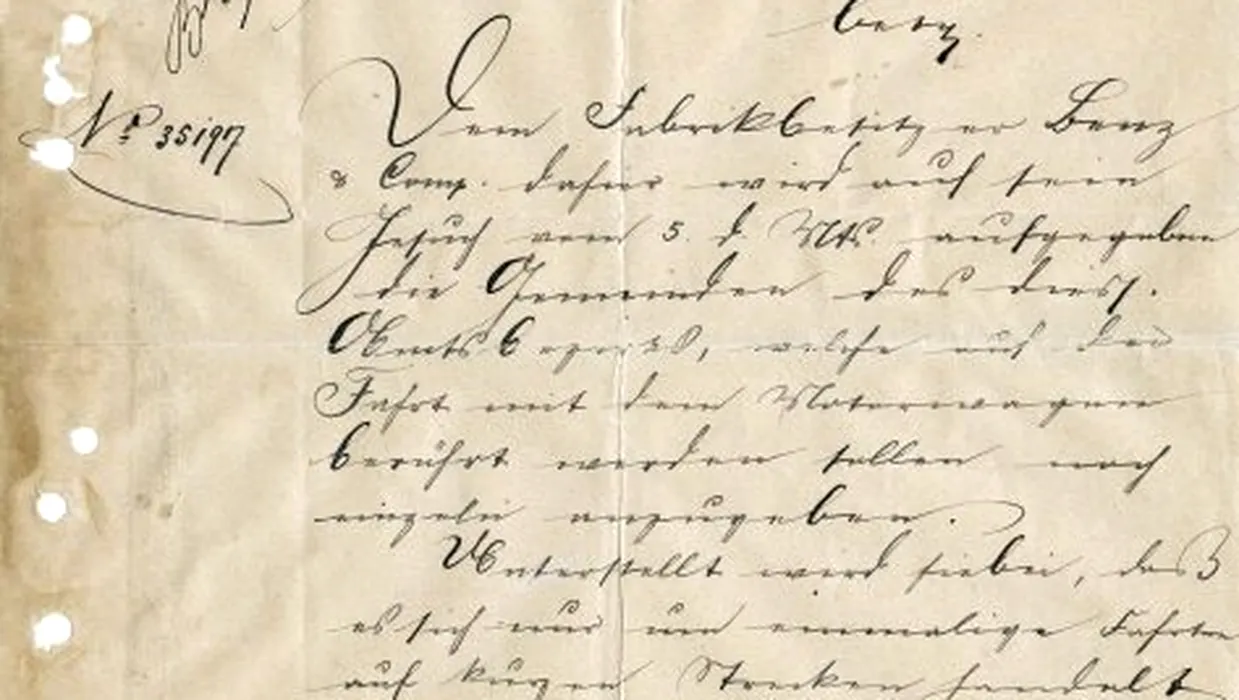 betr.
No 35197
Dem Fabrikbesitzer Benz
& Comp. dahier wird auf sein
Gesuch vom 5. d. Mts. aufgegeben
die Gemeinden des diess.
Amtsbezirks, welche auf der
Fahrt mit dem Motorwagen
berührt werden sollen noch
einzeln anzugeben.
Unterstellt wird hiebei, daß
es sich nur um einmalige Fahrten
auf kurzen Strecken handelt